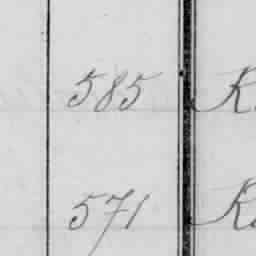 585 K
571 K